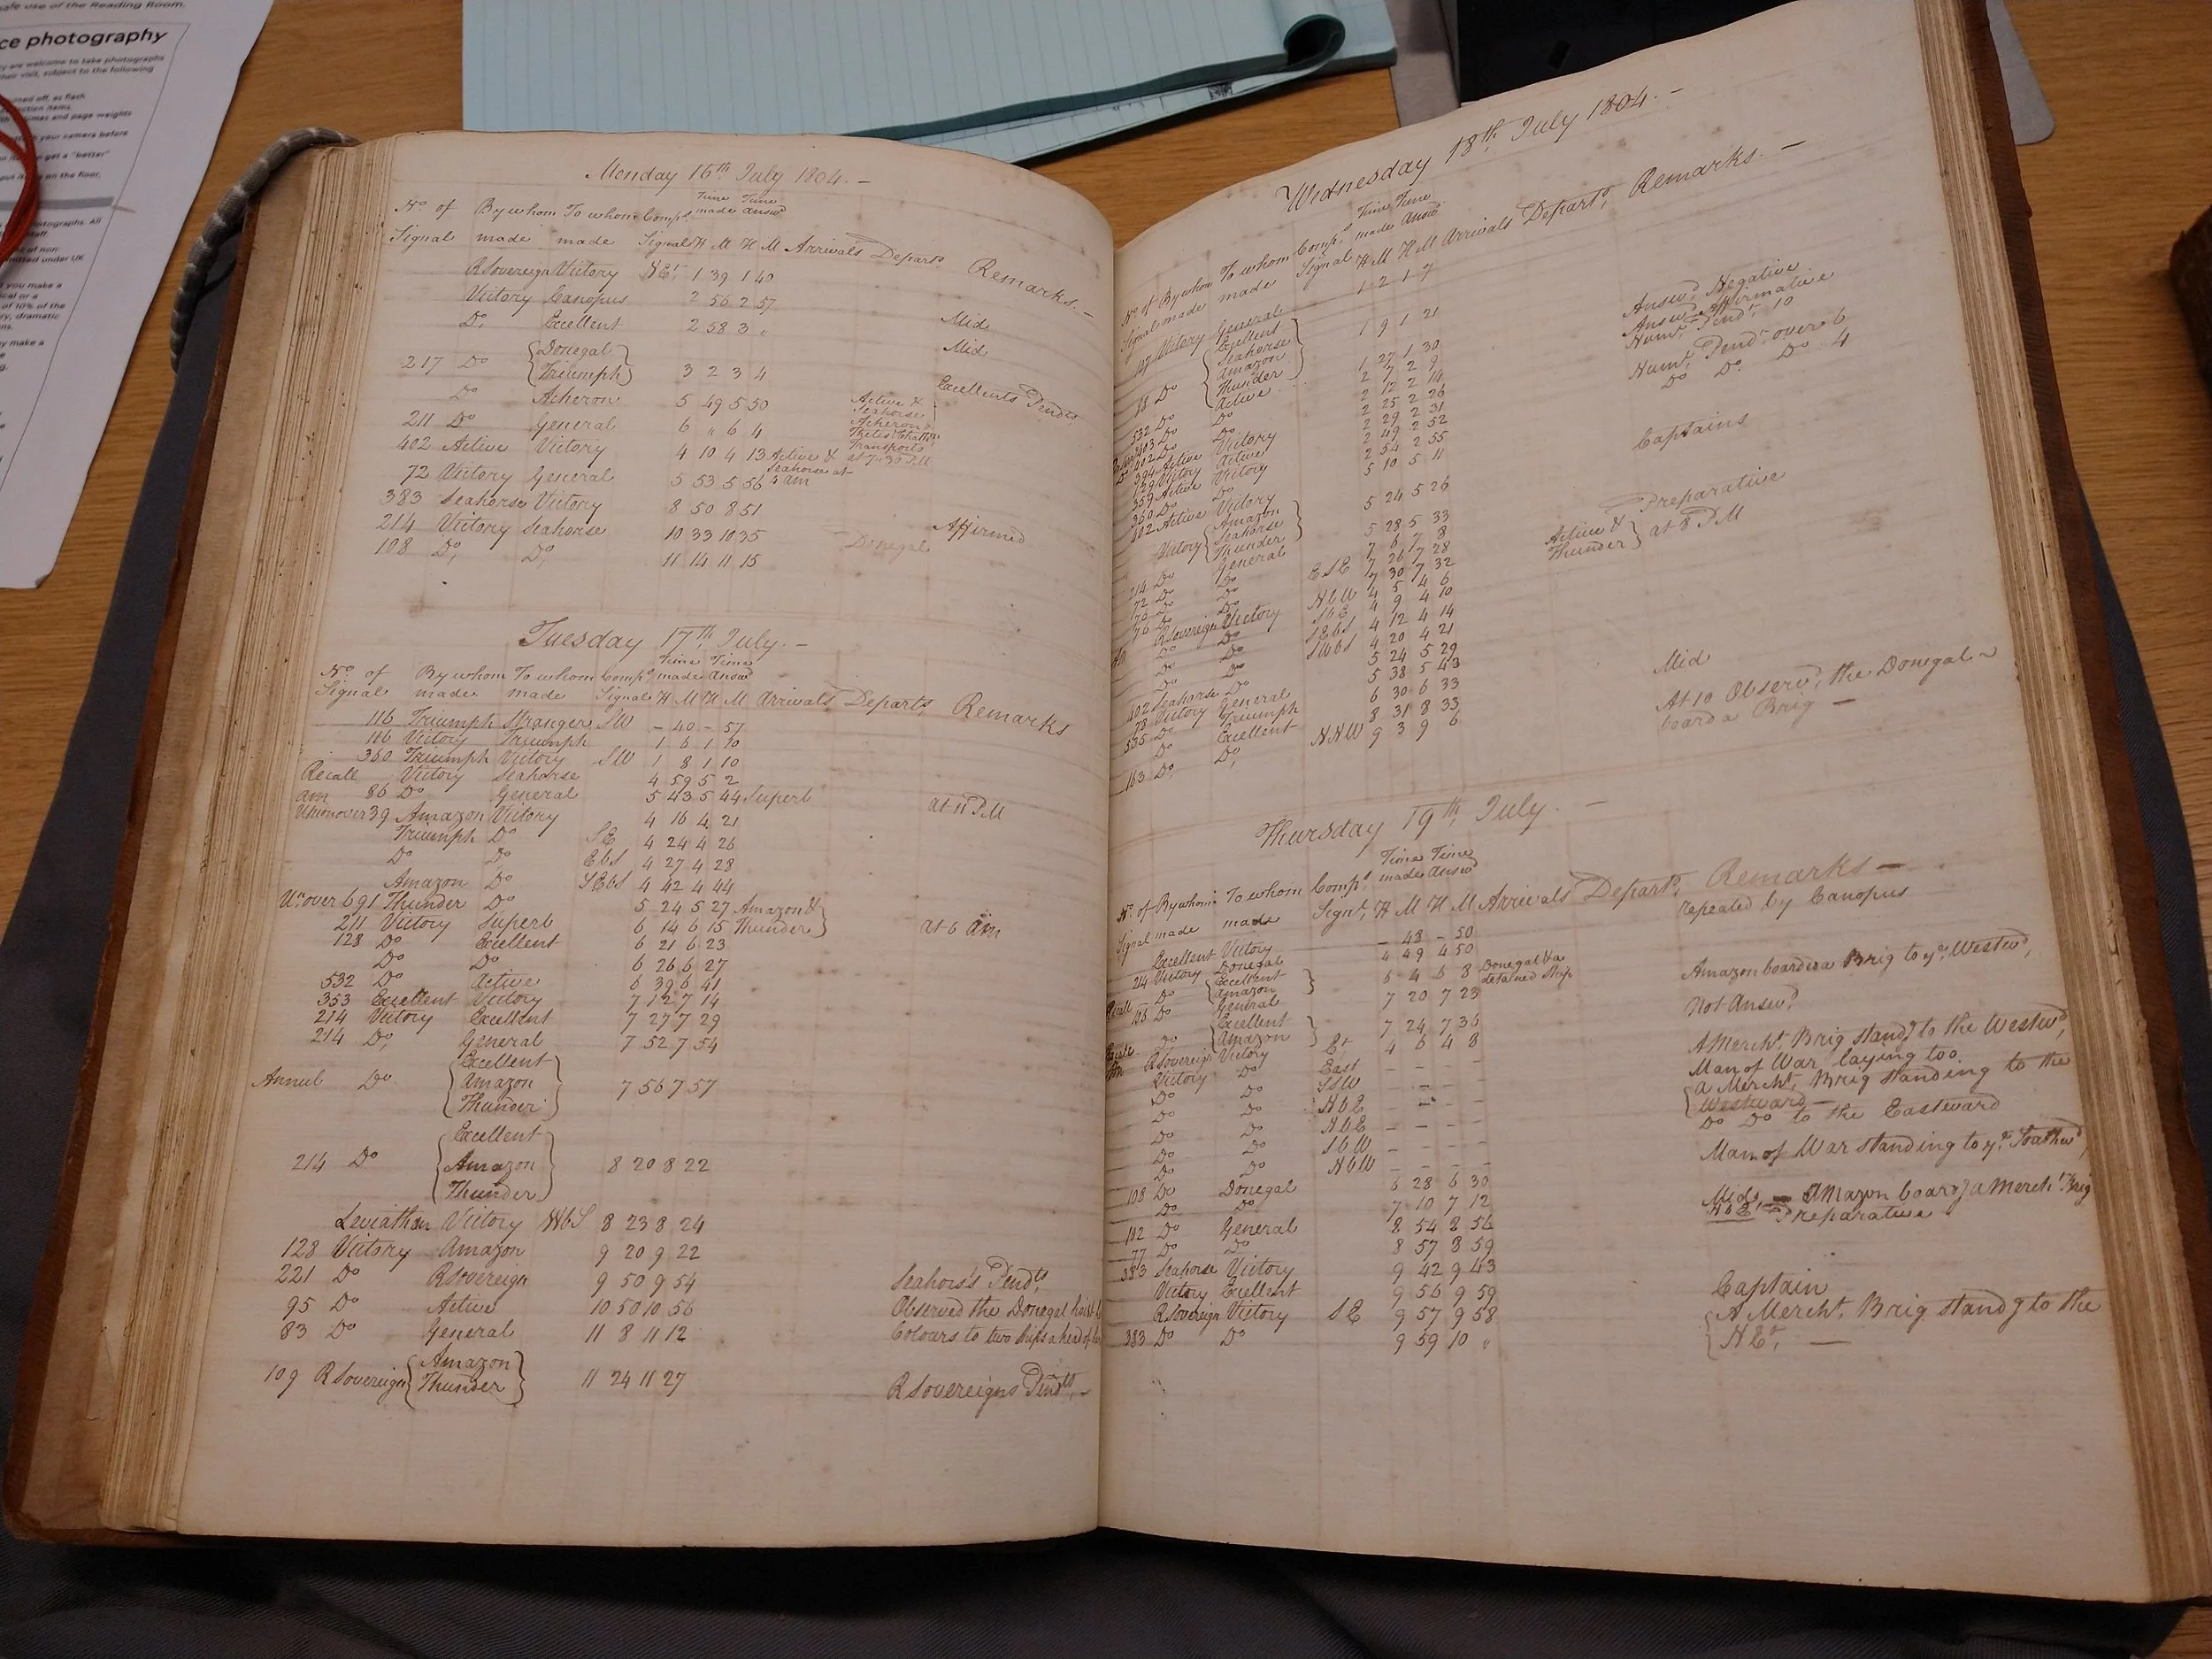 afe use of the Reading Room.
ce photography
y are welcome to take photographs
their visit, subject to the following
Monday 16th July 1804. —
Time Time
No. of By whom To whom Comps. made Answd
Signal made made Signal H M H M Arrivals Departs. Remarks. —
RSovereign Victory NEt. 1 39 1 40
Victory Canopus 2 56 2 57 Mid
Do. Excellent 2 58 3 " Mid
217 Do { Donegal
Triumph } 3 2 3 4 Excellents Pendts
Do Acheron 5 49 5 50 Active &
Seahorse
211 Do General 6 " 6 4 Acheron
Transports
402 Active Victory 4 10 4 13 Active & at 7-30 PM
Seahorse at
72 Victory General 5 53 5 56 4 am
383 Seahorse Victory 8 50 8 51
214 Victory Seahorse 10 33 10 35 Donegal Affirmed
108 Do, Do, 11 14 11 15
Tuesday 17th July. —
Time Time
No. of By whom To whom Comps. made Answd
Signal made made Signal H M H M Arrivals Departs. Remarks
116 Triumph Strangers SW – 40 – 57
116 Victory Triumph 1 6 1 10
360 Triumph Victory SW 1 8 1 10
Recall Victory Seahorse 4 59 5 2
86 Do General 5 43 5 44 Superb at 11 PM
am
Union over 39 Amazon Victory 4 16 4 21
Triumph Do SE 4 24 4 26
Do Do EbS 4 27 4 28
Amazon Do SEbS 4 42 4 44
Un. over 691 Thunder Do 5 24 5 27 Amazon &
211 Victory Superb 6 14 6 15 Thunder } at 6 am
128 Do Excellent 6 21 6 23
Do Do 6 26 6 27
532 Do Active 6 39 6 41
353 Excellent Victory 7 12 7 14
214 Victory Excellent 7 27 7 29
214 Do, General 7 52 7 54
Annul Do { Excellent
Amazon
Thunder } 7 56 7 57
214 Do { Excellent
Amazon
Thunder } 8 20 8 22
Leviathan Victory NWbS 8 23 8 24
128 Victory Amazon 9 20 9 22
221 Do RSovereign 9 50 9 54 Seahors's Pendts.
95 Do Active 10 50 10 56 Observed the Donegal hoist
83 Do General 11 8 11 12 Colours to two Ships ahead of
109 RSovereign { Amazon
Thunder } 11 24 11 27 RSovereigns Pendts. —
Wednesday 18th July 1804. —
Time Time
No. of By whom To whom Comps. made Answd
Signal made made Signal H M H M Arrivals Departs. Remarks. —
107 Victory General 1 2 1 7
{ Excellent
Seahorse
Amazon
Thunder } 1 9 1 21
Do Active 1 27 1 30 Answd Negative
532 Do Do 2 7 2 9 Answd Affirmative
Do Do 2 12 2 14 Numl. Pendt. 10
402 Do Victory 2 25 2 26 Numl. Pendt. over 6
394 Active Active 2 29 2 31 Do Do. Do 4
129 Victory Victory 2 49 2 52
359 Active Do 2 54 2 55
360 Do 5 10 5 11 Captains
402 Active Victory
Victory { Amazon
Seahorse
Thunder } 5 24 5 26
214 Do General 5 28 5 33 Preparative
72 Do Do 7 6 7 8 Active &
Thunder } at 8 PM
76 Do Do ESE 7 26 7 28
76 Do Do 7 30 7 32
RSovereign Victory NbW 4 5 4 6
Do Do SbE 4 9 4 10
Do Do SEbS 4 12 4 14
Do Do SWbS 4 20 4 21
402 Seahorse Do 5 24 5 29
72 Victory General 5 38 5 43
535 Do Triumph 6 30 6 33 Mid
Do Excellent 8 31 8 33 At 10 Observd. the Donegal
163 Do, Do, NNW 9 3 9 6 board a Brig —
Thursday 19th, July. —
Time Time
No. of By whom To whom Comps. made Answd
Signal made made Signl. H M H M Arrivals Departs. Remarks —
Excellent Victory – 48 – 50 repeated by Canopus
214 Victory Donegal 4 49 4 50
Recall Do { Excellent
Amazon } 6 4 6 8 Donegal & a
detained Ship Amazon boarded a Brig to ye. Westwd,
106 Do General 7 20 7 23 Not Answd.
Recall Do { Excellent
Amazon } 7 24 7 36
RSovereign Victory Et 4 6 4 8 A Mercht. Brig standg to the Westwd,
Victory Do East – – – – Man of War laying too
Do Do SSW – – – – { a Mercht. Brig standing to the
Westward —
Do Do NbE – – – – Do Do to the Eastward
Do Do NbE – – – –
Do Do SbW – – – – Man of War standing to ye. Southwd,
Do Do NbW – – – –
108 Do Donegal 6 28 6 30
Do Do 7 10 7 12 Mid, — Amazon boardg a Mercht. Brig
102 Do General 8 54 8 56 NbE, — Preparative
77 Do Do 8 57 8 59
383 Seahorse Victory 9 42 9 43
Victory Excellent 9 56 9 59 Captain
RSovereign Victory SE 9 57 9 58 { A Mercht. Brig standg to the
383 Do Do 9 59 10 " NEt. —